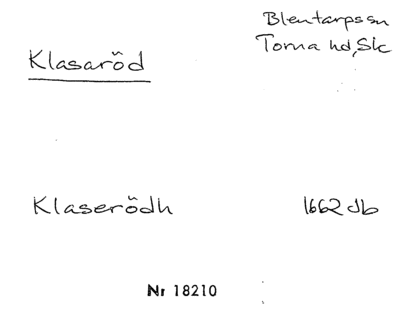 Blentarpssn
Klasaröd
Torna hd, Sk
Klaserödh 1662 db
Nr 18210